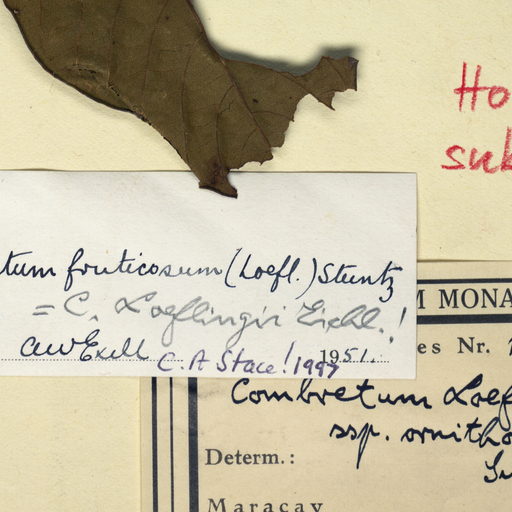 Ho
sub
tum fruticosum (Loefl.) Stuntz
= C. Loeflingii Eichl.!
AW Exell 1951.
C. A Stace! 1997
M MONA
es Nr.
Combretum Loef
ssp. ornitho
Determ.:
Maracay